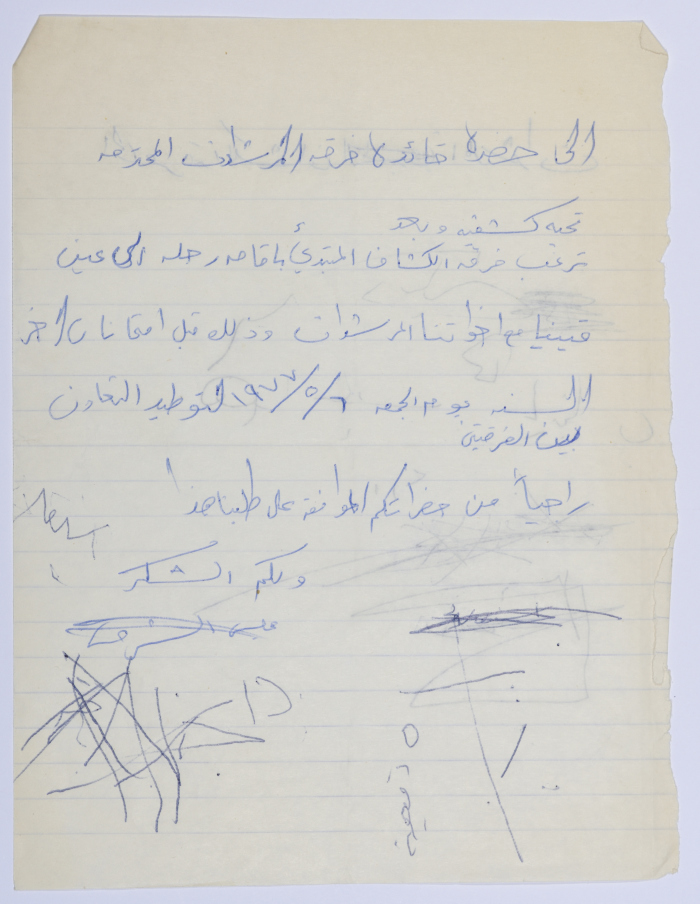 الى حضرة قائدة فرقه المرشدات المحترمه
تحيه كشفيه وبعد
ترغب فرقة الكشاف المبتدئ باقامه رحله الى عين
قينيا مع اخواتنا المرشدات وذلك قبل امتحانات اخر
السنه يوم الجمعه ٦/٥/١٩٧٧ لتوطيد التعاون
بين الفرقتين
راجياً من حضراتكم الموافقه على طلبنا هذا
ولكم الشكر